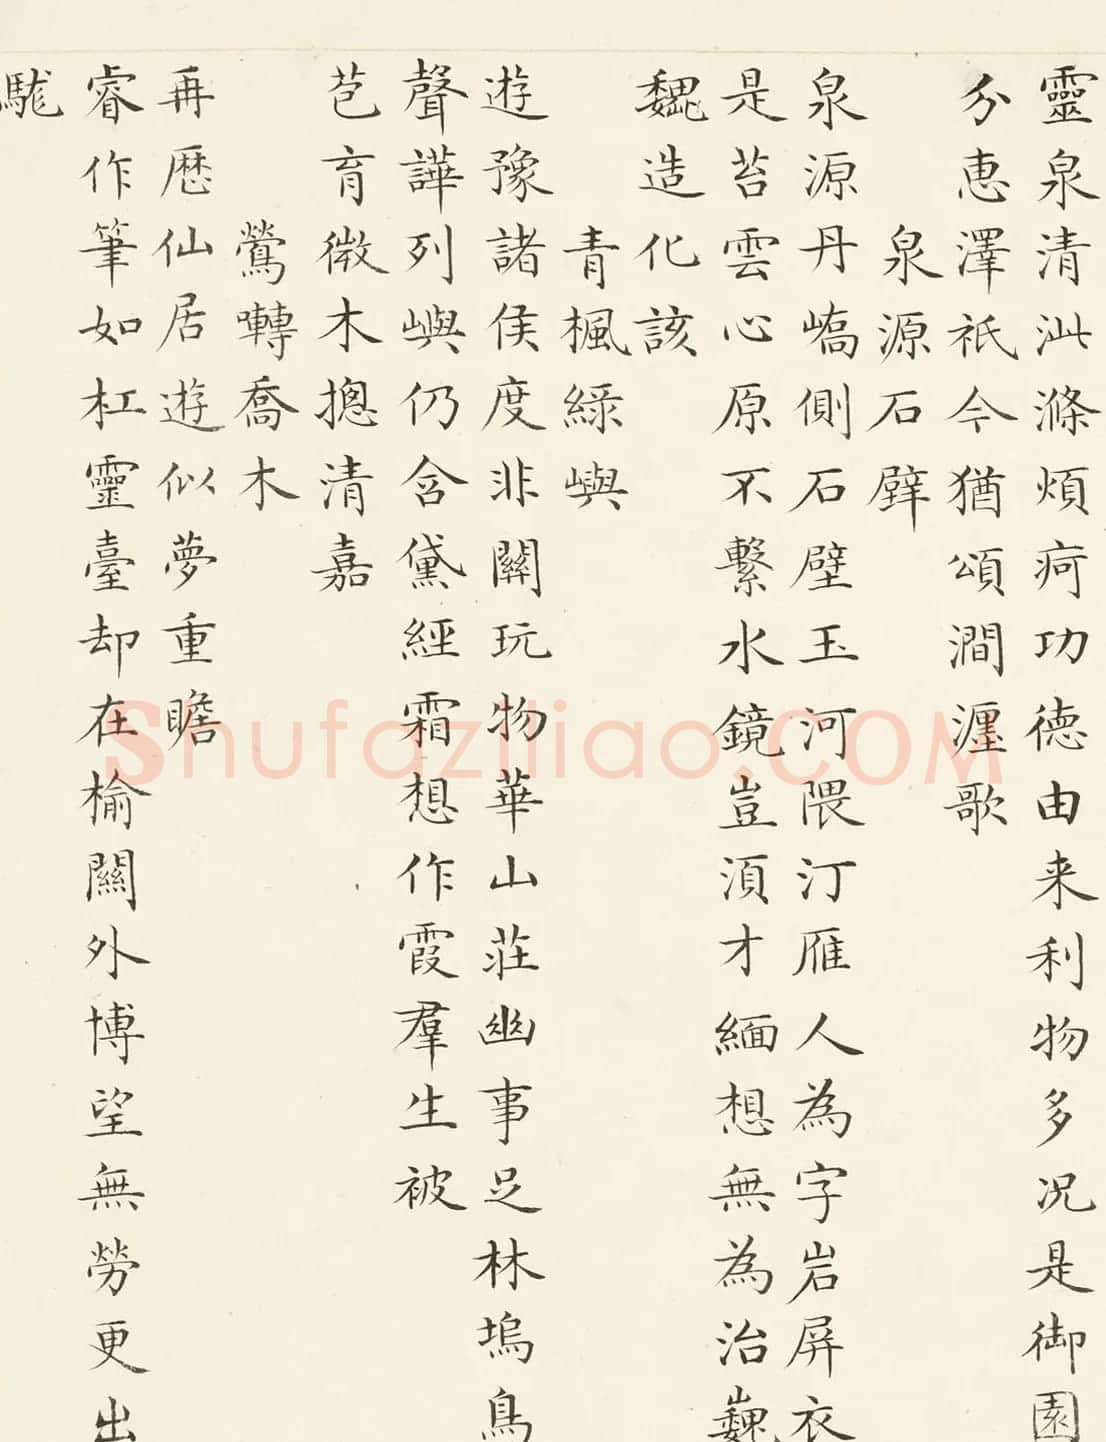 靈泉清泚滌煩疴功德由来利物多况是御園
分惠澤祇今猶頌澗瀍歌
泉源石壁
泉源丹嶠側石壁玉河隈汀雁人為字岩屏衣
是苔雲心原不繫水鏡豈湏才緬想無為治巍
巍造化該
青楓綠嶼
遊豫諸侯度非關玩物華山莊幽事足林塢鳥
聲譁列嶼仍含黛經霜想作霞羣生被
苞育微木摠清嘉
鶯囀喬木
再歷仙居遊似夢重瞻
睿作筆如杠靈臺却在榆關外博望無勞更出
駹
Shufaziliao.COM